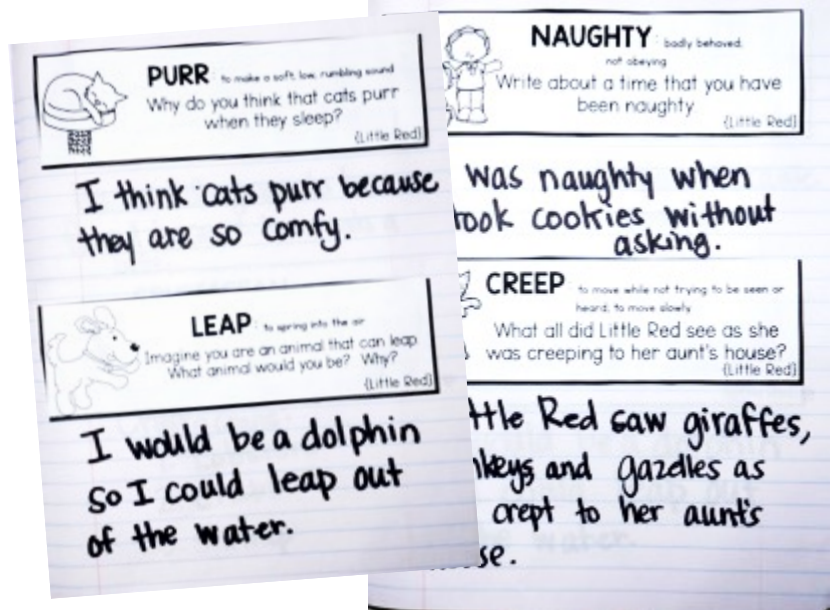 PURR : to make a soft, low, rumbling sound
Why do you think that cats purr
when they sleep?
{Little Red}
I think cats purr because
they are so comfy.
LEAP : to spring into the air
Imagine you are an animal that can leap
What animal would you be? Why?
{Little Red}
I would be a dolphin
so I could leap out
of the water.
NAUGHTY : badly behaved,
not obeying
Write about a time that you have
been naughty
{Little Red}
was naughty when
cookies without
asking.
CREEP : to move while not trying to be seen or
heard; to move slowly
What all did Little Red see as she
was creeping to her aunt's house?
{Little Red}
Red saw giraffes,
and gazelles as
crept to her aunt's